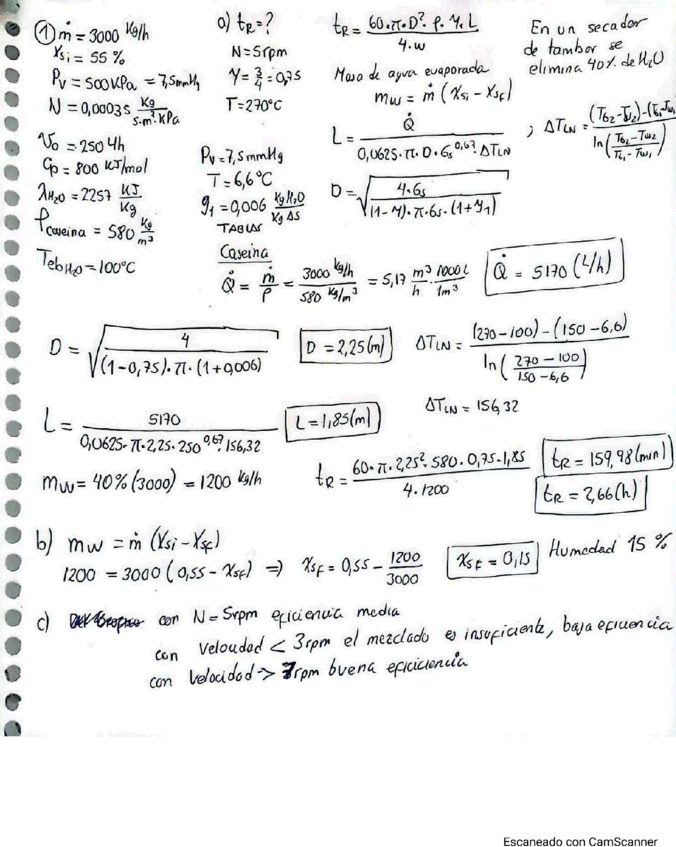 ① ṁ = 3000 Kg/h
Xsi = 55 %
Pv = 500KPa = 7,5mmHg
N = 0,00035 Kg/s·m²·KPa
V̇o = 250 4h
Cp = 800 KJ/mol
λH₂O = 2257 KJ/Kg
ρcaseina = 580 kg/m³
TebH₂O = 100°C
a) tR = ?
N = 5rpm
Y = 3/4 = 0,75
T = 270°C
Pv = 7,5 mmHg
T = 6,6°C
y₁ = 0,006 KgH₂O/Kg AS
TABLAS
tR = 60·π·D²·ρ·Y·L / 4·w
Masa de agua evaporada
mw = ṁ (Xsi − Xsf)
L = Q̇ / 0,0625·π·D·Gs^0,67·ΔTLN ; ΔTLN = (Tb2 − Tw2) − (Tb1 − Tw1) / ln(Tb2 − Tw2 / Tb1 − Tw1)
D = √(4·Gs / (1 − Y)·π·Gs·(1 + Y₁))
En un secador
de tambor se
elimina 40% de H₂O
Caseina
Q̇ = ṁ/ρ = 3000 kg/h / 580 Kg/m³ = 5,17 m³/h · 1000 L/1m³ Q̇ = 5170 (L/h)
D = √(4 / (1 − 0,75)·π·(1 + 0,006)) D = 2,25 (m) ΔTLN = (270 − 100) − (150 − 6,6) / ln(270 − 100 / 150 − 6,6)
ΔTLN = 156,32
L = 5170 / 0,0625·π·2,25·250^0,67·156,32 L = 1,85 (m)
mw = 40% (3000) = 1200 Kg/h tR = 60·π·2,25²·580·0,75·1,85 / 4·1200 tR = 159,98 (min)
tR = 2,66 (h)
b) mw = ṁ (Xsi − Xsf)
1200 = 3000 (0,55 − Xsf) ⇒ Xsf = 0,55 − 1200/3000 XsF = 0,15 Humedad 15 %
c) con N = 5rpm eficiencia media
con velocidad < 3rpm el mezclado es insuficiente, baja eficiencia
con velocidad > 7rpm buena eficiciencia
Escaneado con CamScanner